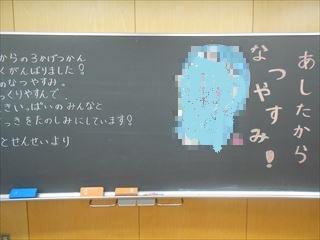 あしたから
なつやすみ!
からの3かげつかん
くがんばりました!
のなつやすみ。
っくりやすんで、
きいっぱいのみんなと
っきをたのしみにしています!
とせんせいより